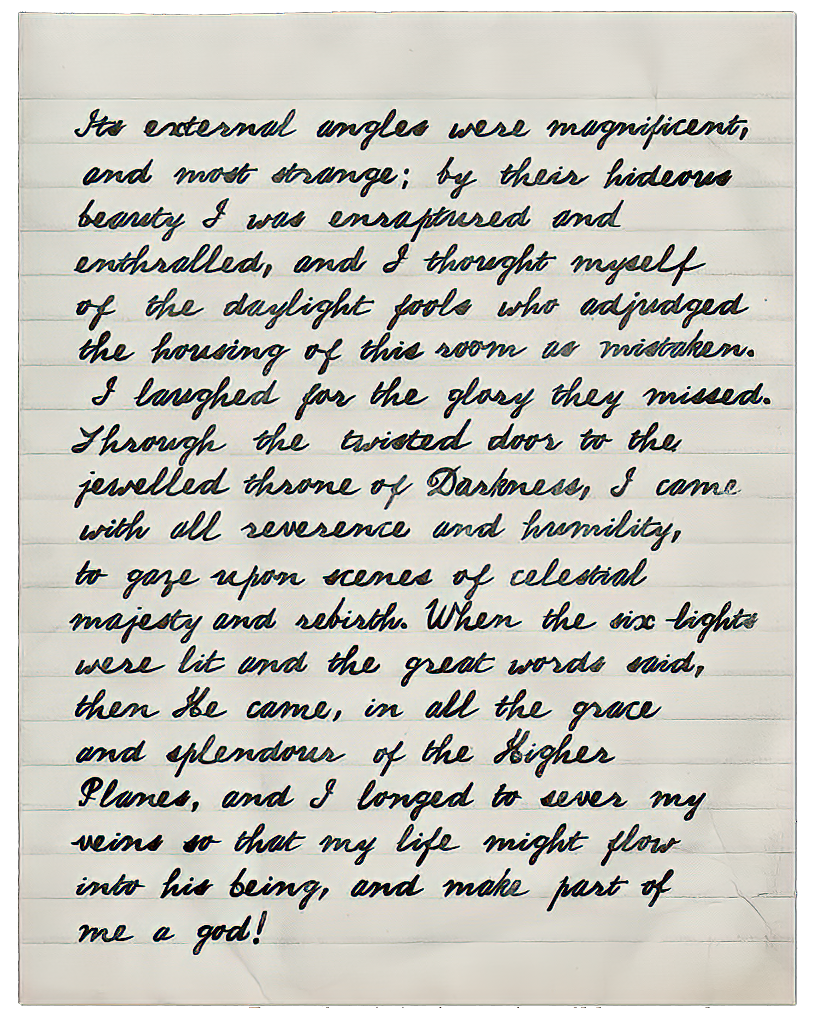 Its external angles were magnificent,
and most strange; by their hideous
beauty I was enraptured and
enthralled, and I thought myself
of the daylight fools who adjudged
the housing of this room as mistaken.
I laughed for the glory they missed.
Through the twisted door to the
jewelled throne of Darkness, I came
with all reverence and humility,
to gaze upon scenes of celestial
majesty and rebirth. When the six lights
were lit and the great words said,
then He came, in all the grace
and splendour of the Higher
Planes, and I longed to sever my
veins so that my life might flow
into his being, and make part of
me a god!